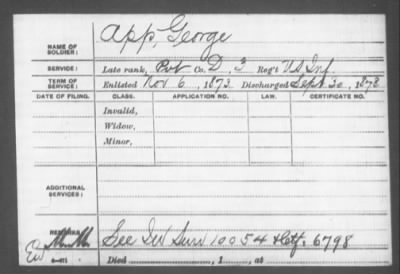 App, George
NAME OF SOLDIER:
SERVICE: Late rank, Pvt Co. D, 3 Reg't US Inf.
TERM OF SERVICE: Enlisted Nov 6, 1873. Discharged Sept. 30, 1878
DATE OF FILING. CLASS. APPLICATION NO. LAW. CERTIFICATE NO.
Invalid,
Widow,
Minor,
ADDITIONAL SERVICES:
REMARKS: See Ind Surv 10054 Ctf. 6798
Died , 1 , at